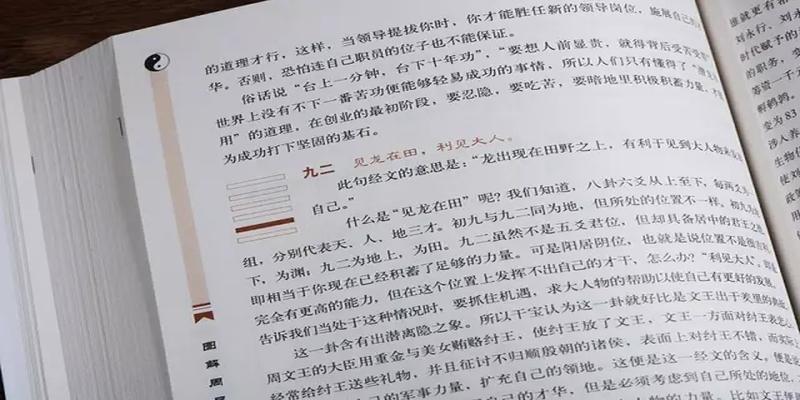 的道理才行，这样，当领导提拔你时，你才能胜任新的领导岗位，施展自己的
华。否则，恐怕连自己职员的位子也不能保证。
俗话说“台上一分钟，台下十年功”，“要想人前显贵，就得背后受苦受
世界上没有不下一番苦功便能够轻易成功的事情，所以人们只有懂得了“潜龙
用”的道理，在创业的最初阶段，要忍隐，要吃苦，要暗地里积极积蓄力量，
为成功打下坚固的基石。
九二 见龙在田，利见大人。
此句经文的意思是：“龙出现在田野之上，有利于见到大人物来
自己。”
什么是“见龙在田”呢？我们知道，八卦六爻从上至下，每两爻为
组，分别代表天、人、地三才。初九与九二同为地，但所处的位置不一样。初九为
下，为渊；九二为地上，为田。九二虽然不是五爻君位，但却具备居中的君王之
即相当于你现在已经积蓄了足够的力量。可是阳居阴位，也就是说位置不是很
完全有更高的能力，但在这个位置上发挥不出自己的才干，怎么办？“利见大人”，即
告诉我们当处于这种情况时，要抓住机遇，求大人物的帮助以使自己有更好的发展。
这一卦含有出潜离隐之象。所以干宝认为这一卦就好比是文王出于羑里的
周文王的大臣用重金与美女贿赂纣王，使纣王放了文王，文王一方面对纣王表
经常给纣王送些礼物，并且征讨不归顺殷朝的诸侯，表面上对纣王不错，而实
自己的军事力量，扩充自己的领地。这便是这一经文的含义。便是
自己的才华，但是必须考虑到自己所处的地位，
人物的力量。比如文王便
图解周易
谁就更有
刘永行、刘永
时代赋予的
的职务，变
等资一千
鹌鹑。
变为 83
涉人养
生物
使刘
政策
用